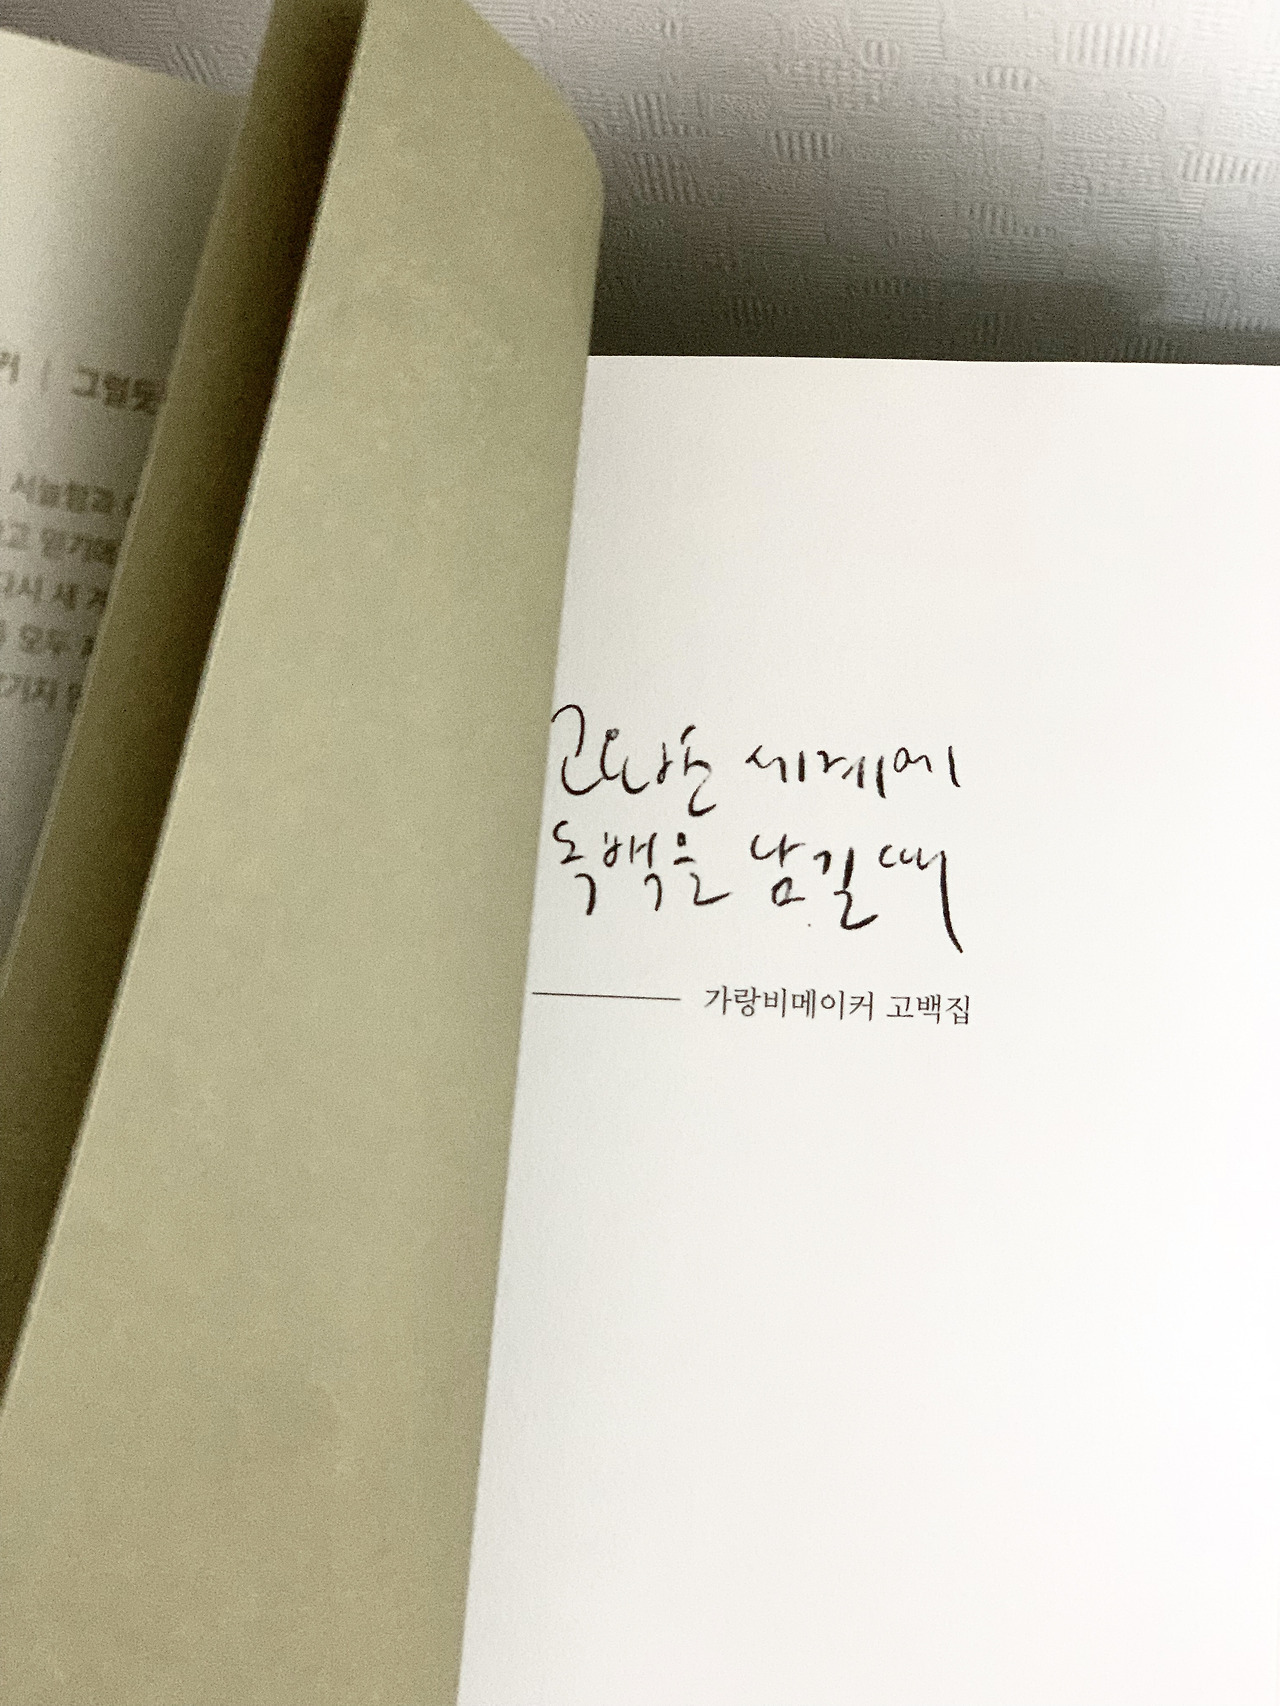 커 | 그럴듯
서늘함과
고 믿기에
다시 세
모두
기지
고요한 세계에
독백을 남길 때
가랑비메이커 고백집